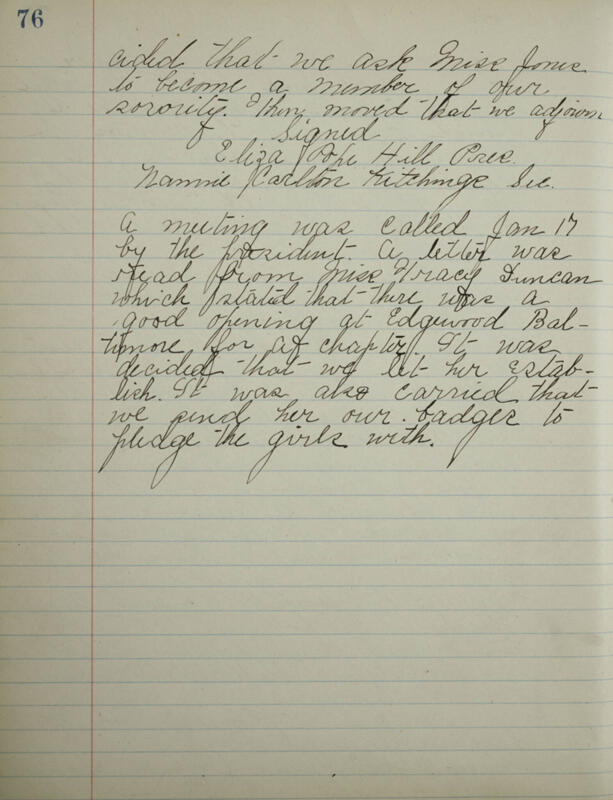 76
cided that we ask Miss Jones
to become a member of our
sorority. Then moved that we adjourn
Signed
Eliza Pope Hill Pres.
Nannie Carlton Kitchings Sec.
A meeting was called Jan 17
by the president. A letter was
read from Miss Tracy Duncan
which stated that there was a
good opening at Edgewood Bal-
timore for a chapter. It was
decided that we let her estab-
lish. It was also carried that
we send her our badges to
pledge the girls with.